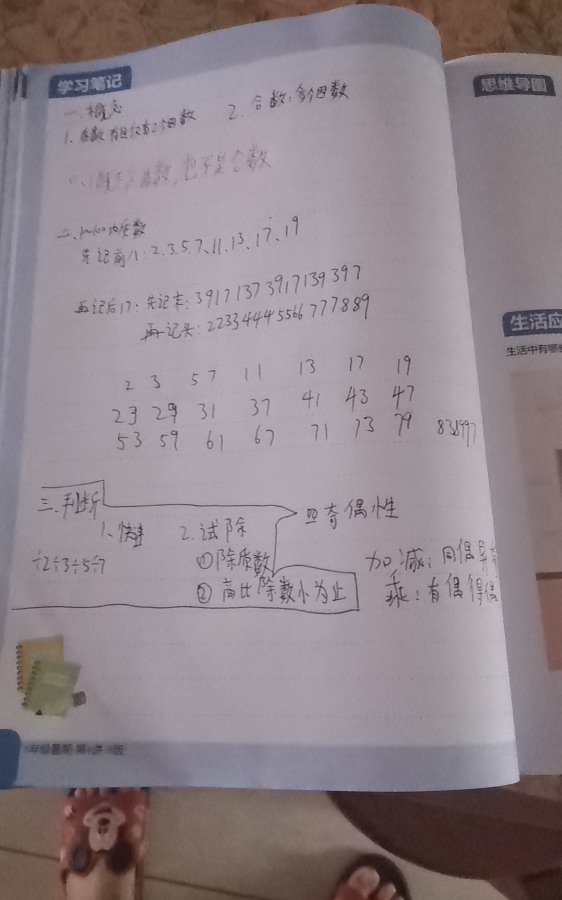 学习笔记
思维导图
一、概念
1、质数 有且仅有2个因数 2. 合数:多个因数
1既不是质数,也不是合数
二、100内质数
先记前八:2.3.5.7、11、13、17、19
再记后17:先记末:39171373917139397
再记头:223344445566777889
2 3 5 7 11 13 17 19
23 29 31 37 41 43 47
53 59 61 67 71 73 79 838997
生活应
生活中有哪些
三、判断
1、快速 2.试除 四奇偶性
÷2÷3÷5÷7 ①除质数 加减:同偶异奇
②商比除数小为止 乘:有偶得偶
年级暑期·第